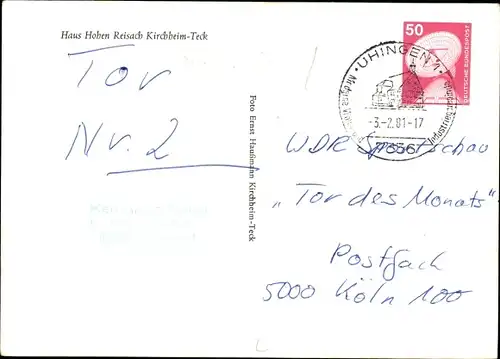 Haus Hohen Reisach Kirchheim-Teck
Tor
Nr. 2
Foto Ernst Haußmann Kirchheim-Teck
50
DEUTSCHE BUNDESPOST
UHINGEN 1
-3.-2.81-17
7336
WDR Sportschau
„Tor des Monats"
Postfach
5000 Köln 100